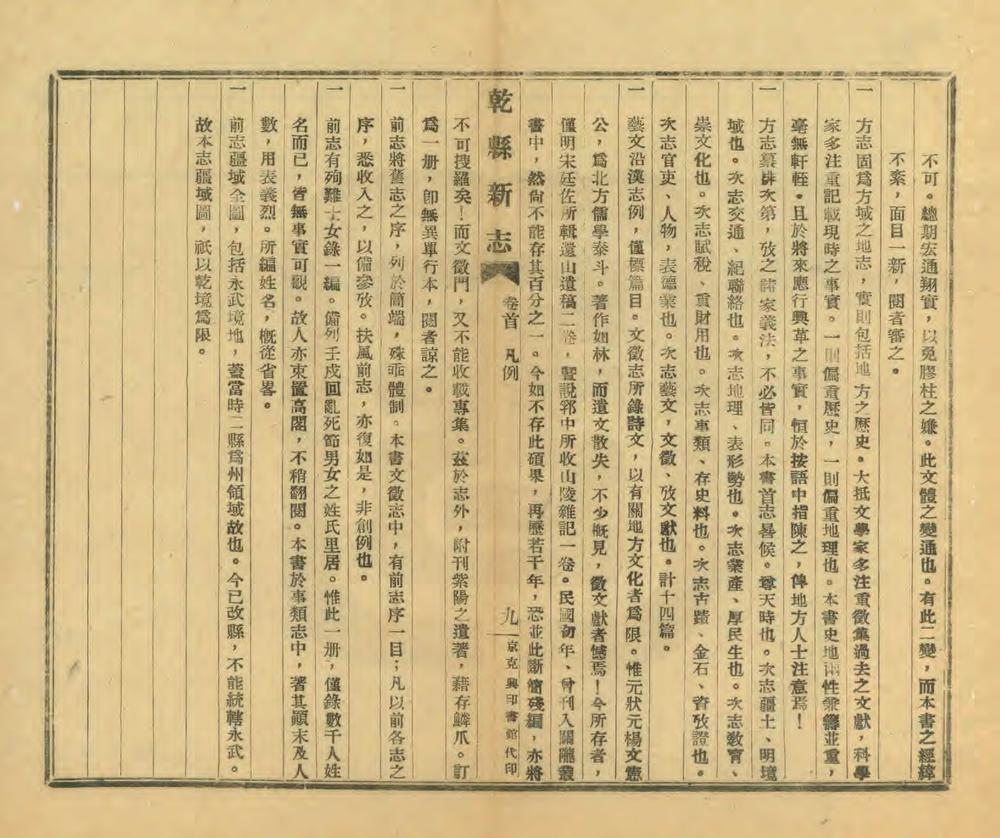 不可。總期宏通翔實，以免膠柱之嫌。此文體之變通也。有此二變，而本書之經緯
不紊，面目一新，閱者審之。
一　方志固爲方域之地志，實則包括地方之歷史。大抵文學家多注重徵集過去之文獻，科學
家多注重記載現時之事實。一則偏重歷史，一則偏重地理也。本書史地兩性兼籌並重，
毫無軒輊。且於將來應行興革之事實，恒於按語中指陳之，俾地方人士注意焉！
一　方志纂排次第，攷之諸家義法，不必皆同。本書首志晷候。尊天時也。次志疆土、明境
域也。次志交通、紀聯絡也。次志地理、表形勢也。次志業產、厚民生也。次志敎育、
崇文化也。次志賦稅、重財用也。次志事類、存史料也。次志古蹟、金石、資攷證也。
次志官吏、人物，表德業也。次志藝文，文徵、攷文獻也。計十四篇。
一　藝文沿漢志例，僅標篇目。文徵志所錄詩文，以有關地方文化者爲限。惟元狀元楊文憲
公，爲北方儒學泰斗。著作如林，而遺文散失，不少概見，徵文獻者憾焉！今所存者，
僅明宋廷佐所輯還山遺稿二卷，曁說郛中所收山陵雜記一卷。民國初年、曾刊入關隴叢
書中，然尙不能存其百分之一。今如不存此碩果，再歷若干年，恐並此斷簡殘編，亦將
乾縣新志　卷首　凡例　九　京克興印書館代印
不可搜羅矣！而文徵門，又不能收載專集。茲於志外，附刊紫陽之遺著，藉存鱗爪。訂
爲一册，卽無異單行本，閱者諒之。
一　前志將舊志之序，列於簡端，殊乖體制。本書文徵志中，有前志序一目；凡以前各志之
序，悉收入之，以備參攷。扶風前志，亦復如是，非創例也。
一　前志有殉難士女錄一編。備列壬戌回亂死節男女之姓氏里居。惟此一册，僅錄數千人姓
名而已，皆無事實可觀。故人亦束置高閣，不稍翻閱。本書於事類志中，著其顚末及人
數，用表義烈。所編姓名，概從省畧。
一　前志疆域全圖，包括永武境地，蓋當時二縣爲州領域故也。今已改縣，不能統轄永武。
故本志疆域圖，祇以乾境爲限。